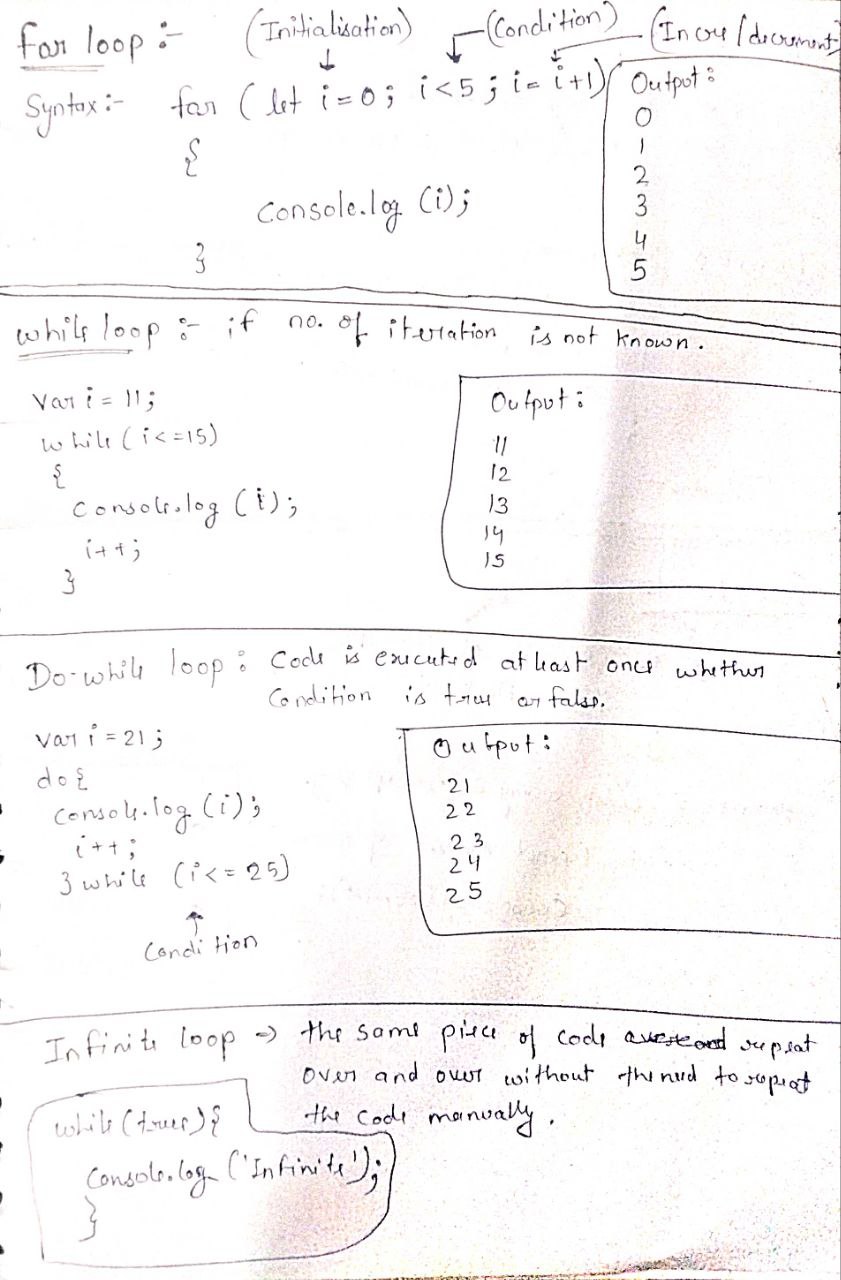 for loop :-
(Initialisation)
(Condition)
(Incre/decrement)
Syntax :- for ( let i = 0 ; i < 5 ; i = i + 1 )
{
Console.log (i);
}
Output :
0
1
2
3
4
5
while loop :- if no. of iteration is not known.
Var i = 11;
while ( i <= 15)
{
Console.log (i);
i++;
}
Output :
11
12
13
14
15
Do-while loop : Code is executed at least once whether
Condition is true or false.
var i = 21;
do {
console.log (i);
i++;
} while (i <= 25)
Condition
Output :
21
22
23
24
25
Infinite loop => the same piece of code repeat
over and over without the need to repeat
the code manually.
while (true) {
Console.log ('Infinite');
}